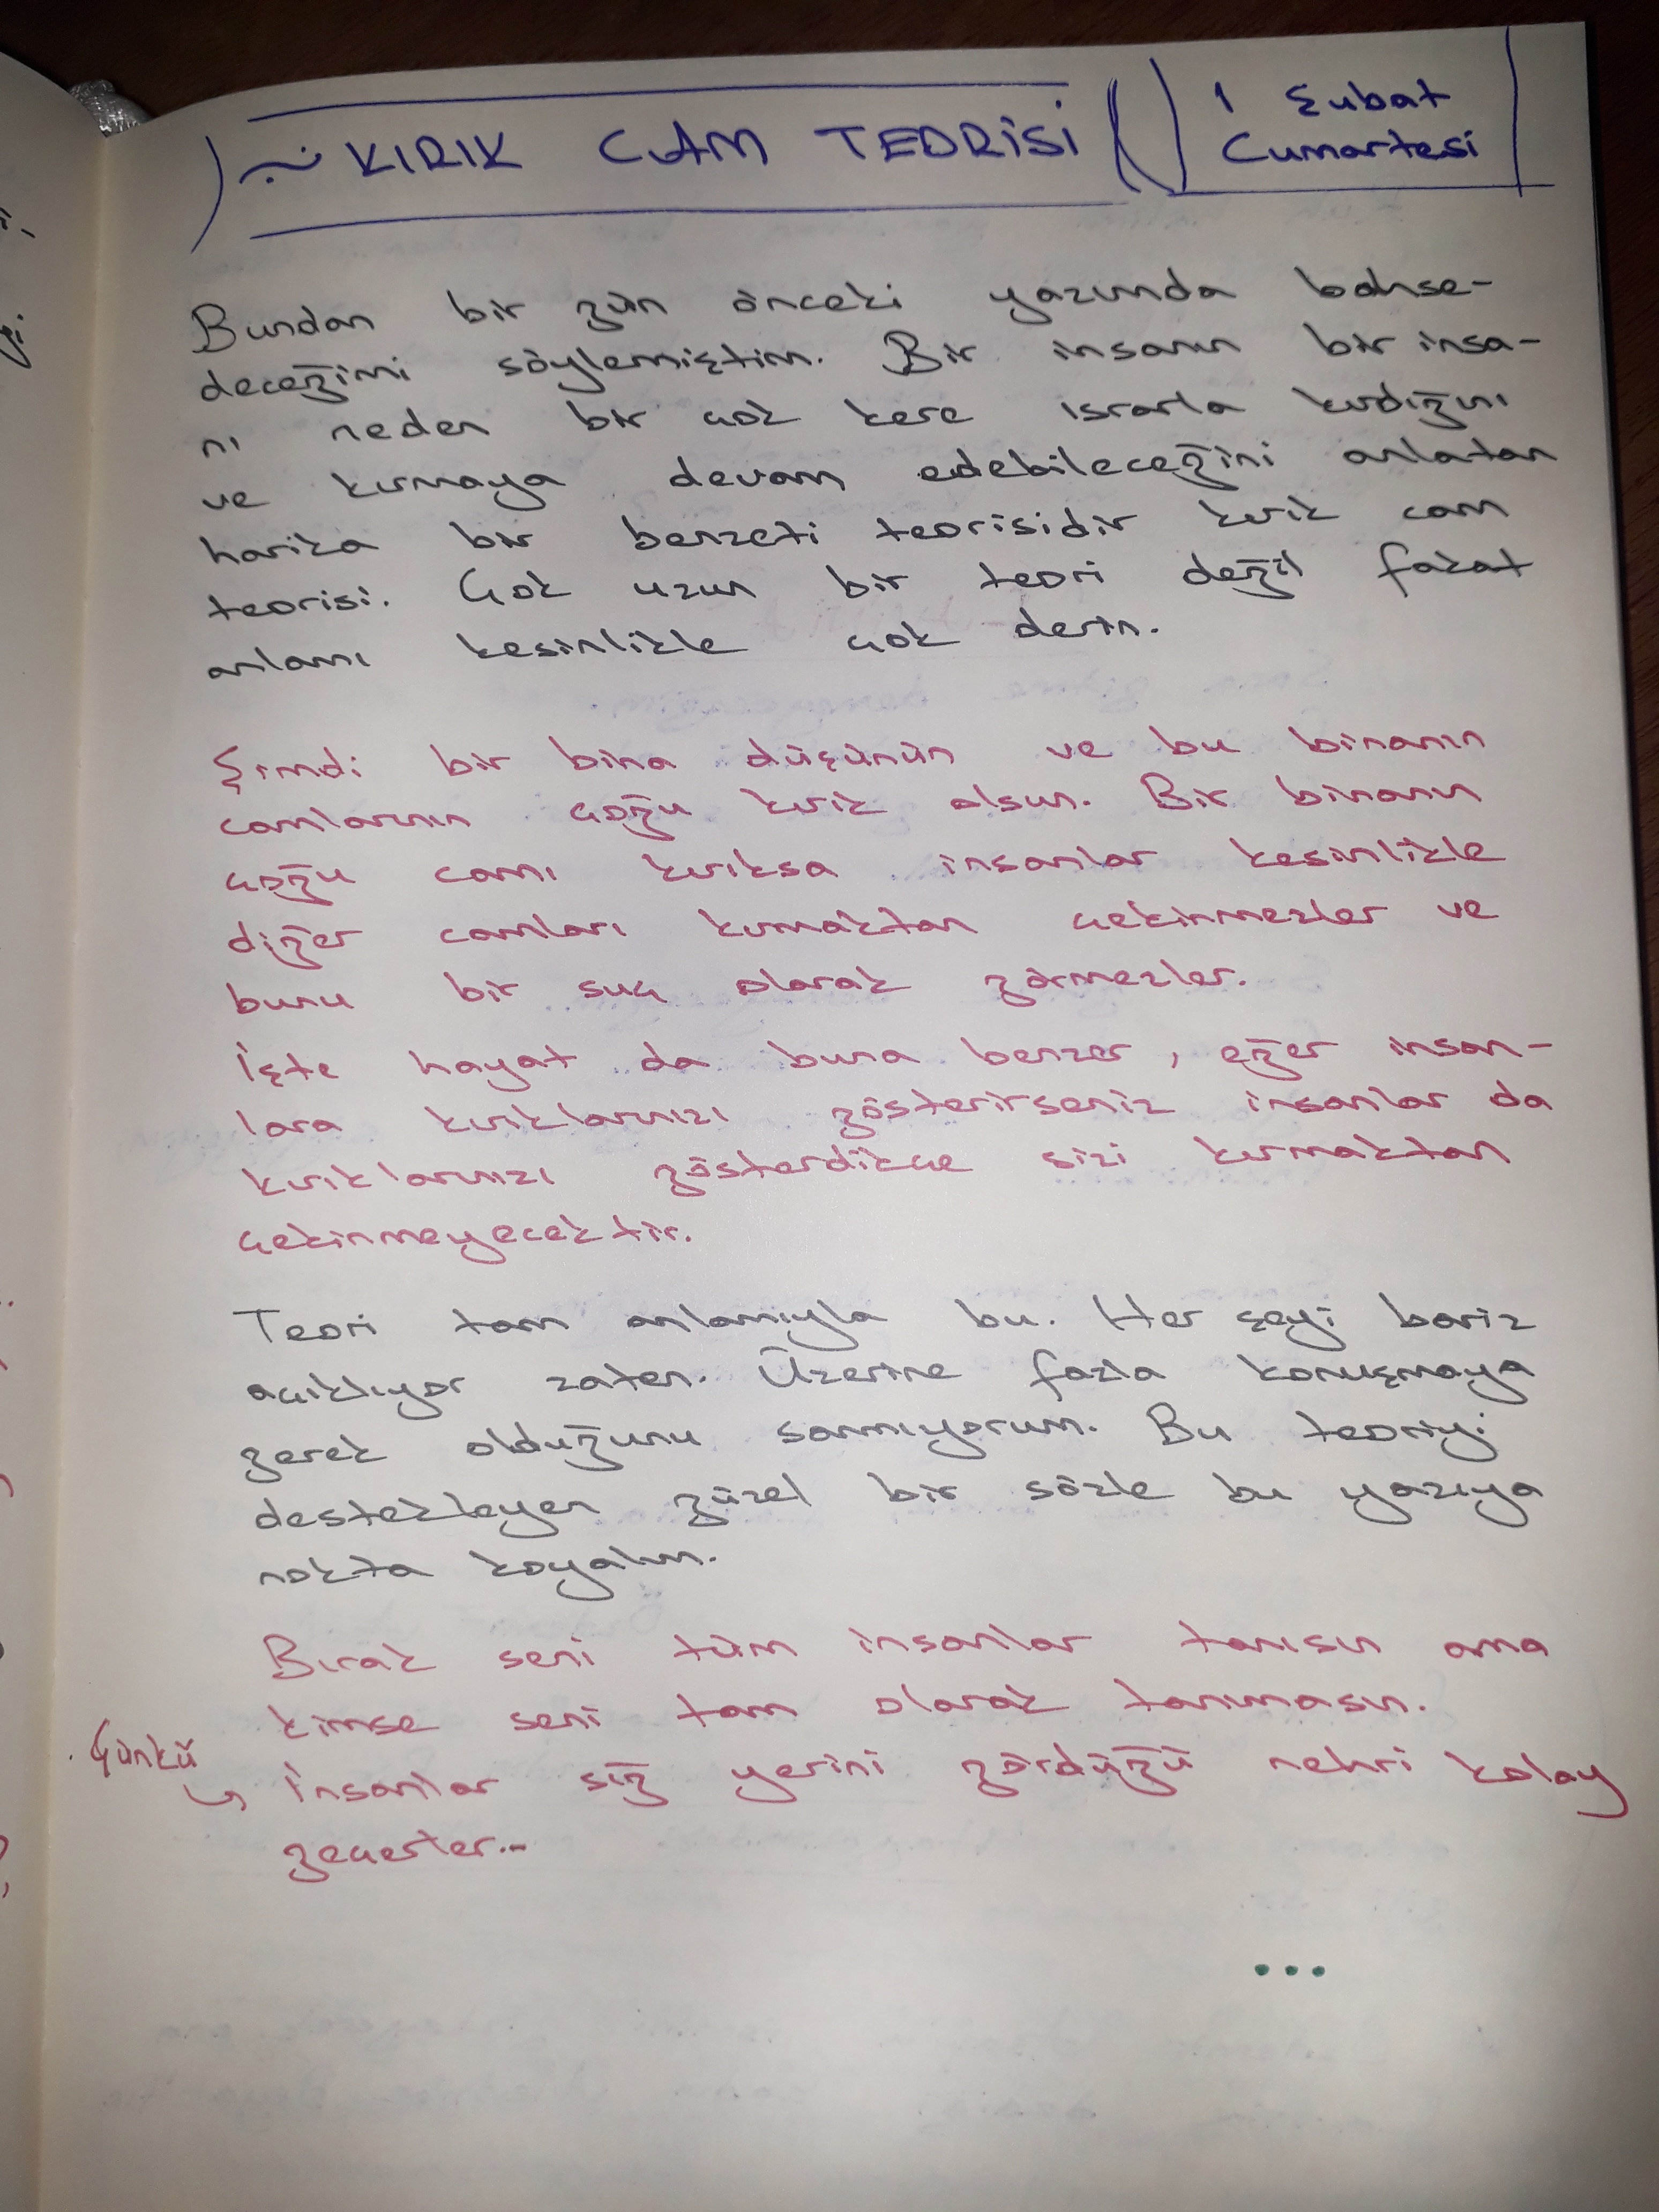 KIRIK CAM TEORİSİ
1 Şubat
Cumartesi
Bundan bir gün önceki yazımda bahse-
deceğimi söylemiştim. Bir insanın bir insa-
nı neden bir çok kere ısrarla kırdığını
ve kırmaya devam edebileceğini anlatan
harika bir benzeti teorisidir kırık cam
teorisi. Çok uzun bir teori değil fakat
anlamı kesinlikle çok derin.
Şimdi bir bina düşünün ve bu binanın
camlarının çoğu kırık olsun. Bir binanın
çoğu camı kırıksa insanlar kesinlikle
diğer camları kırmaktan çekinmezler ve
bunu bir suç olarak görmezler.
İşte hayat da buna benzer, eğer insan-
lara kırıklarınızı gösterirseniz insanlar da
kırıklarınızı gösterdikçe sizi kırmaktan
çekinmeyecektir.
Teori tam anlamıyla bu. Her şeyi bariz
açıklıyor zaten. Üzerine fazla konuşmaya
gerek olduğunu sanmıyorum. Bu teoriyi
destekleyen güzel bir sözle bu yazıya
nokta koyalım.
Bırak seni tüm insanlar tanısın ama
kimse seni tam olarak tanımasın.
Çünkü
İnsanlar sığ yerini gördüğü nehri kolay
geçerler...
...